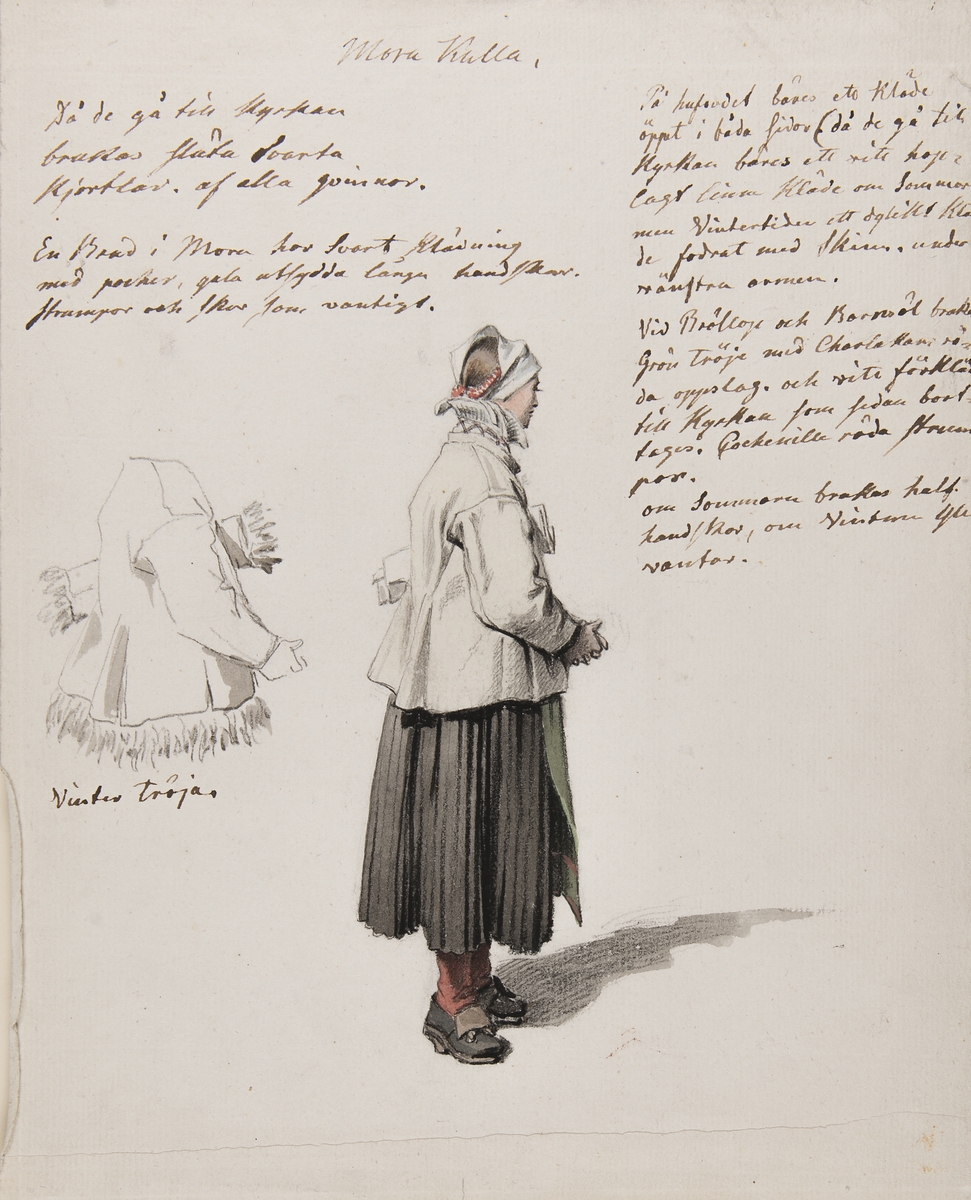 Mora Kulla,
Då de gå till Kyrkan
brukas släta Svarta
Kjortlar. af alla qvinnor.
En Brud i Mora har Svart Klädning
med pocher, gula utsydda långa handskar.
strumpor och skor som vanligt.
På hufvudet bäres ett Kläde
öppet i båda sidor (då de gå till
Kyrkan bäres ett vitt hop-
lagt linne Kläde om Sommar
men Vintertiden ett dylikt Klä
de fodrat med Skinn. under
vänstra armen.
Vid Bröllop och Barnsöl bruka
Grön tröje med Charlakans rö-
da oppslag. och vitt förklä
till Kyrkan som sedan bort-
tages. Cochenille röda strum
por.
om Sommarn brukas half
handskor, om Vintern
vantar.
Vinter tröja.